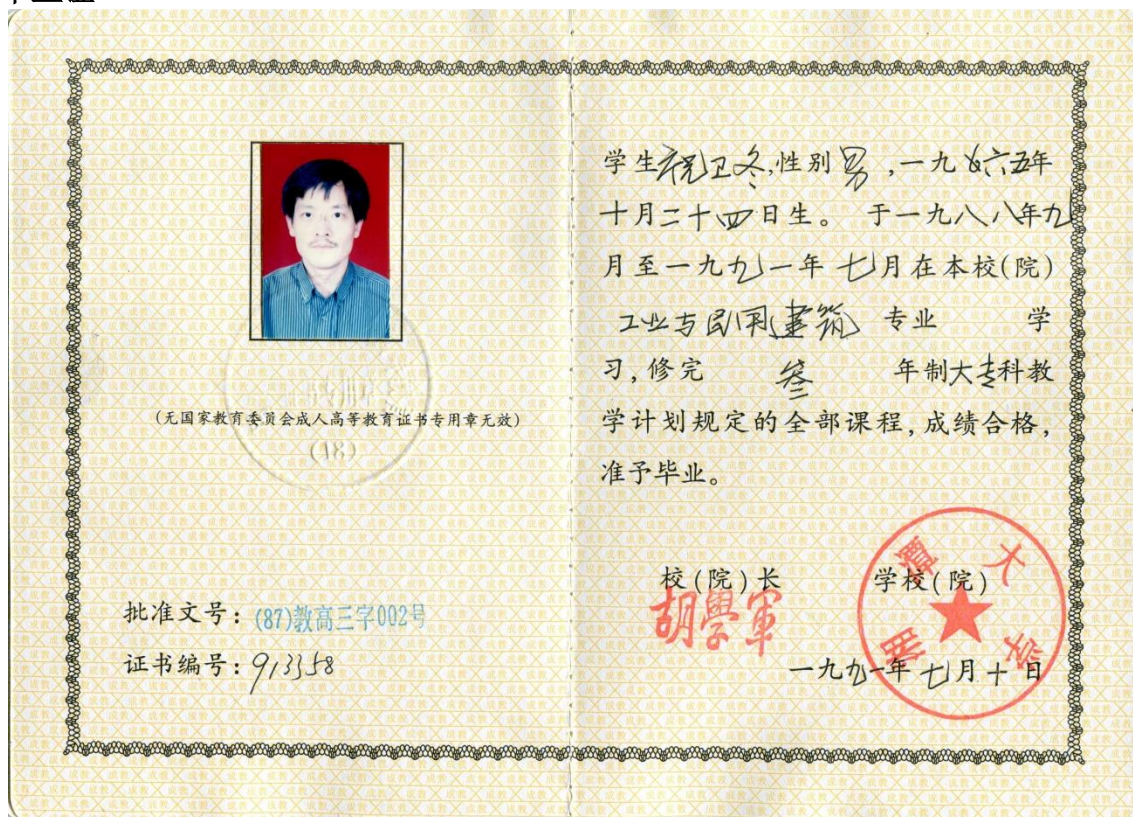 (无国家教育委员会成人高等教育证书专用章无效)
(18)
批准文号：(87)教高三字002号
证书编号：913358
学生祝卫冬,性别男,一九六五年
十月二十四日生。 于一九八八年九
月至一九九一年七月在本校(院)
工业与民用建筑 专业 学
习,修完 叁 年制大专科教
学计划规定的全部课程,成绩合格,
准予毕业。
校(院)长 学校(院)
胡學軍
湘潭大学
一九九一年七月十日